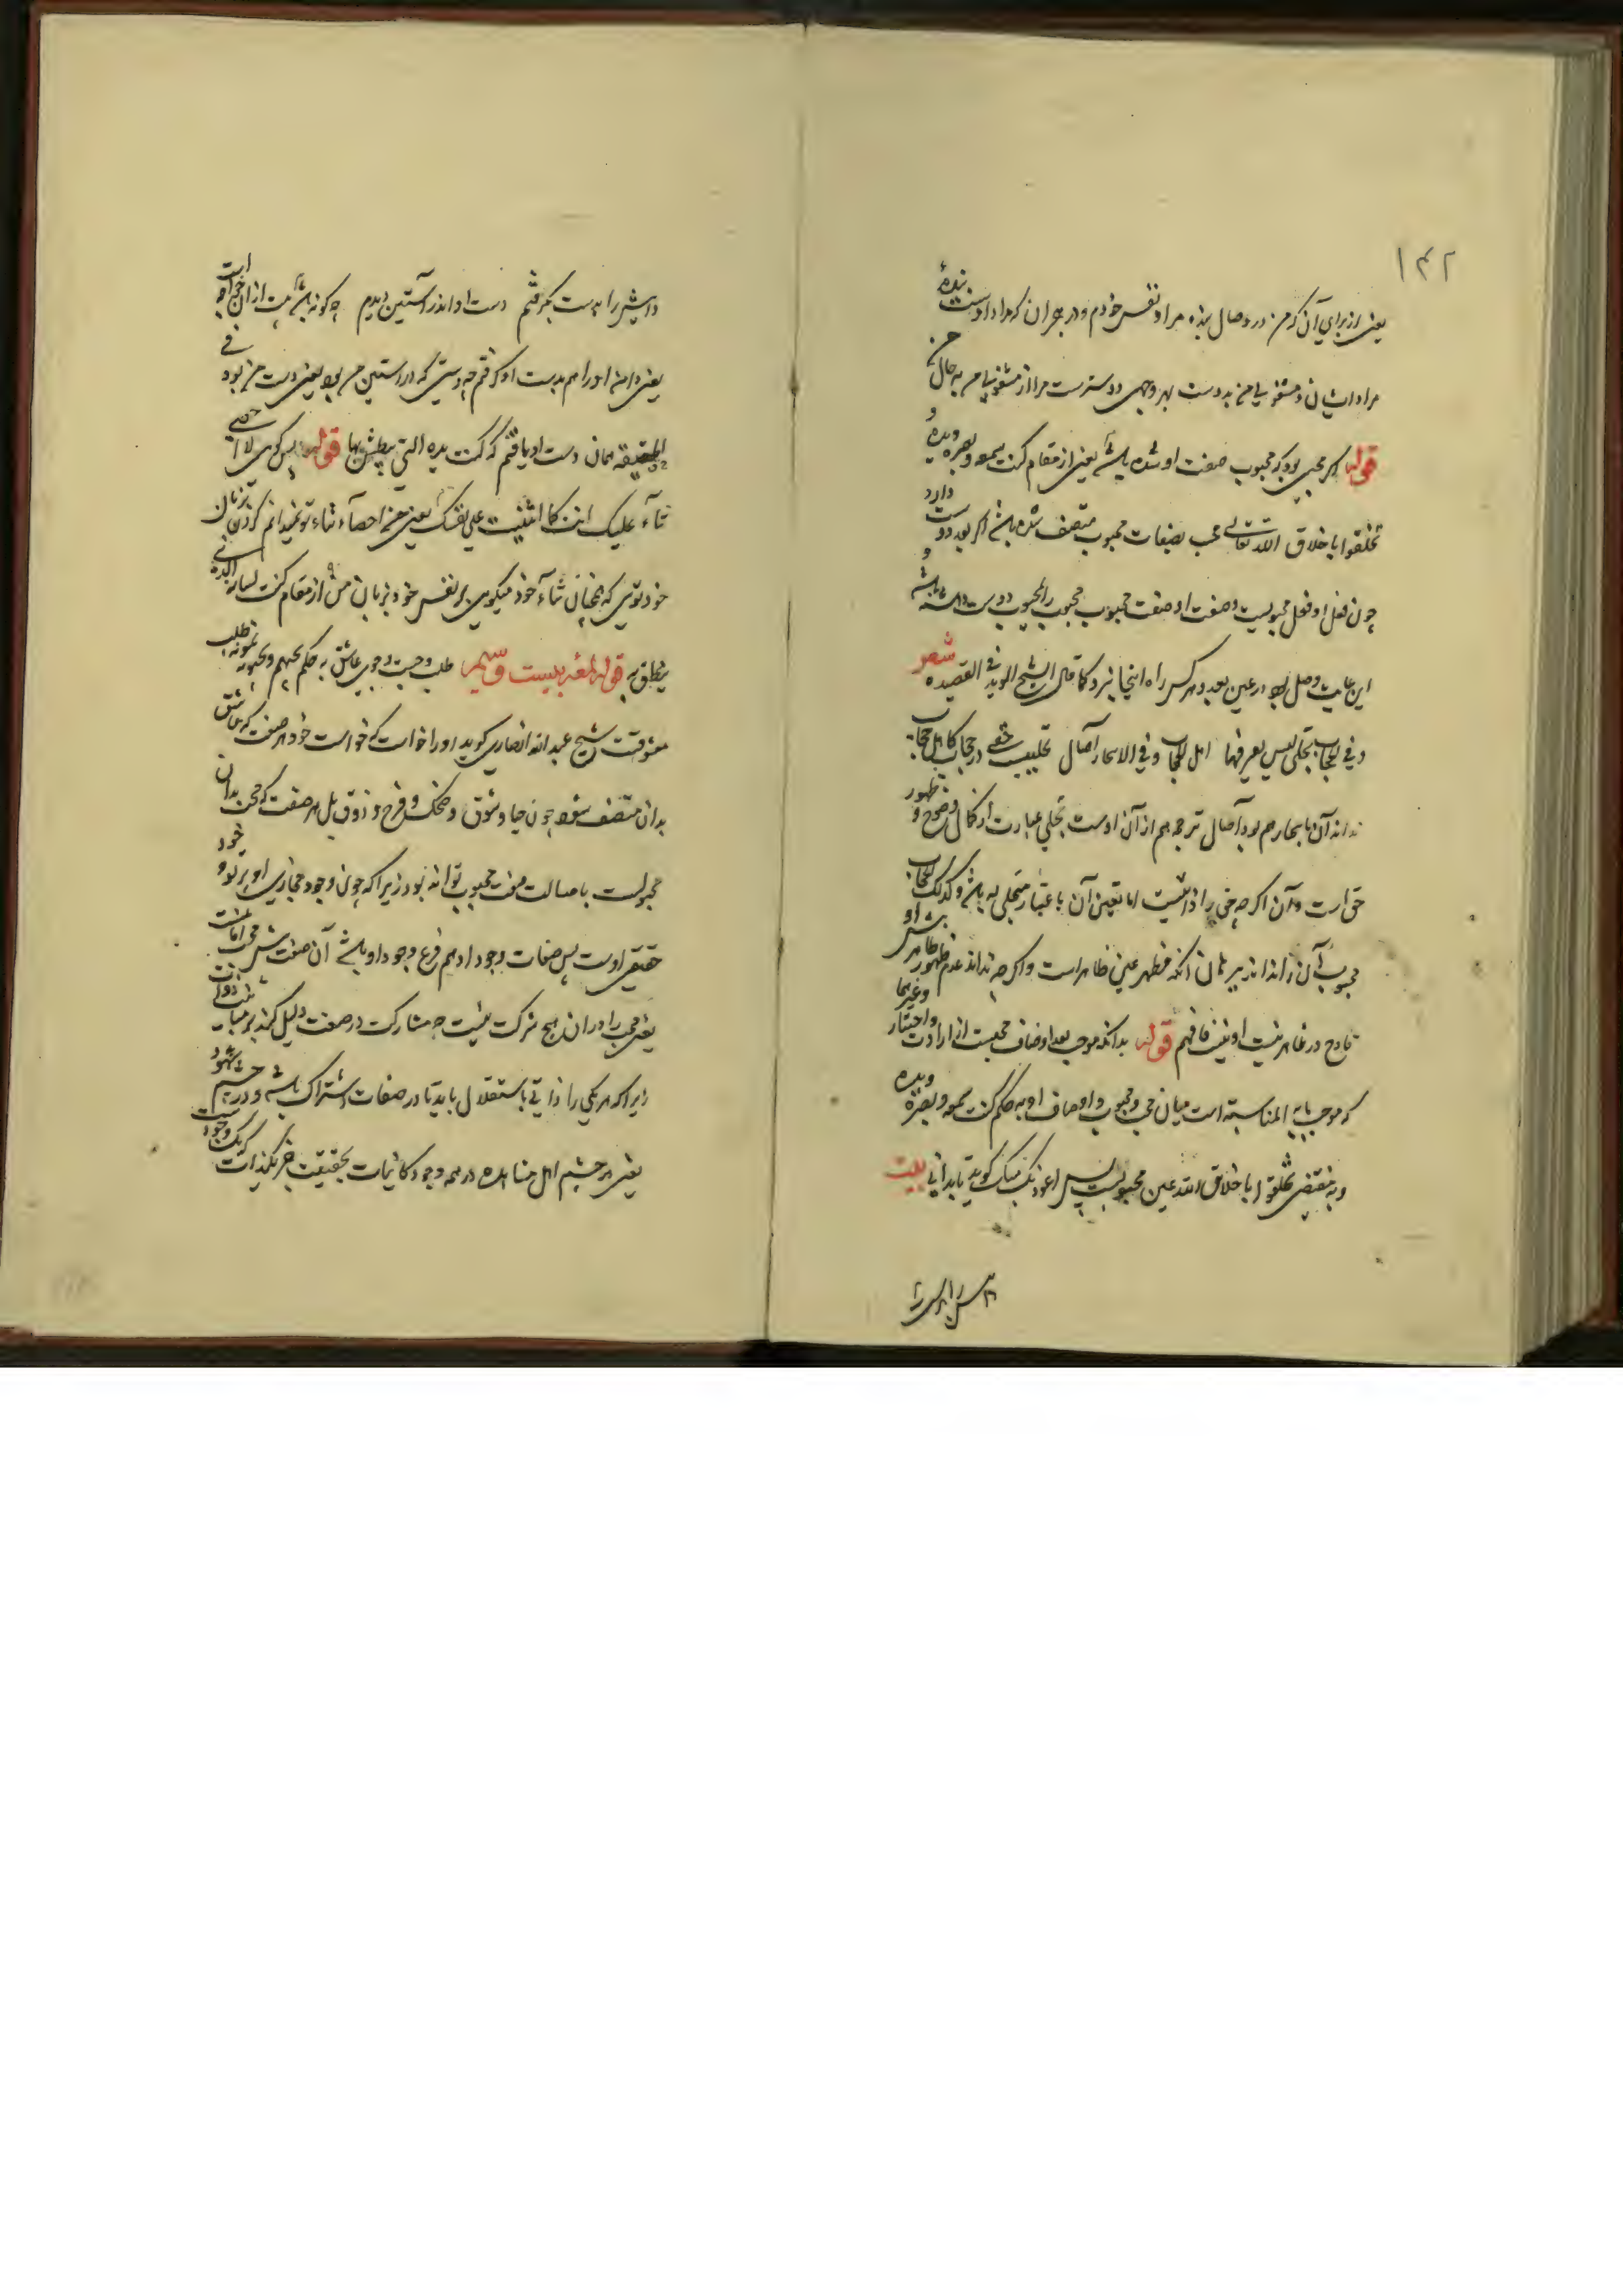 ۱۴۲
یعنی از برای آن که من در وصال بنده مراد نفس خودم و در هجران که مراد اوست بندهٔ
مراد ایشان و مشغولی من به دوست بهر وجهی دوسترست مرا از مشغولیم به حال من
قوله اگر محبی بود که محبوب صفت او شده باشد یعنی از مقام کنت سمعه وبصره ویده و
تخلقوا باخلاق الله تعالی محب بصفات محبوب متصف شده باشد اگر بعد دوست دارد
چون فعل او فعل محبوبست و صفت او صفت محبوب محبوب را لمحبوب دوست داشته باشد و
این غایت وصل بود در عین بعد و هر کس راه اینجا نبرد کما قال الشیخ الموید فی القصیده شعر
وفی الحجاب تجلی لیس یعرفها اهل الحجاب وفی الاسحار آصال
نداند آن اسحار هم بود آصال ترجمه هم از آن اوست تجلی عبارت از کمال وضوح و ظهور
حق است و آن اگرچه حق را ذاتیست اما تعین آن باعتبار متجلی له باشد وکذلک الحجاب
محبوب آن نداند از بهر آن آنکه مظهر عین ظاهر است و اگرچه نداند عدم ظهور ظاهر پیش او
قادح در ظاهریت او نیست فافهم قوله بدانکه موجب بعد اوصاف محبست از ارادت و اختیار وغیرها
که موجب مابه المناسبة است میان محب و محبوب و اوصاف او به حکم کنت سمعه وبصره ویده
وبمقتضی تخلقوا باخلاق الله عین محبوبست پس اعوذ بک منک گوید تا بدانی بیت
دامنش را بدست بگرفتم دست او اندر آستین دیدم
یعنی دامن او را هم بدست او گرفتم چه دستی که در آستین من بود یعنی دست من بود فی
الحقیقه همان دست او یافتم که کنت یده التی یبطش بها قوله پس گوی لا احصی
ثناء علیک انت کما اثنیت علی نفسک یعنی من احصاء ثناء تو نمیدانم کردن بزبان
خود توی که همچنان ثناء خود میگوی بر نفس خود بزبان من از مقام کنت لسانه الذی
ینطق به قوله لمعه بیست وسیم طلب و جست و جوی عاشق به حکم یحبهم ویحبونه نمونه طلب
معشوقست شیخ عبد الله انصاری گوید او را خواست که خواست خود هر صفت که عاشق
بدان متصف شود چون حیا و شوق و ضحک و فرح و ذوق بل هر صفت که محب بدان
مجبولست باصالت صفت محبوب تواند بود زیرا که چون وجود مجازی او پرتو وجود
حقیقی اوست پس صفات وجود او هم فرع وجود او باشد آن صفت پیش محب امانت
یعنی محب را در آن هیچ شرکت نیست چه مشارکت در صفت دلیل کند بر مباینت ذوات
زیرا که هر یکی را ذاتی باستقلال باید تا در صفات اشتراک باشد و در چشم شهود
یعنی در چشم اهل مشاهده در همه وجود کائنات بحقیقت جز یک ذات